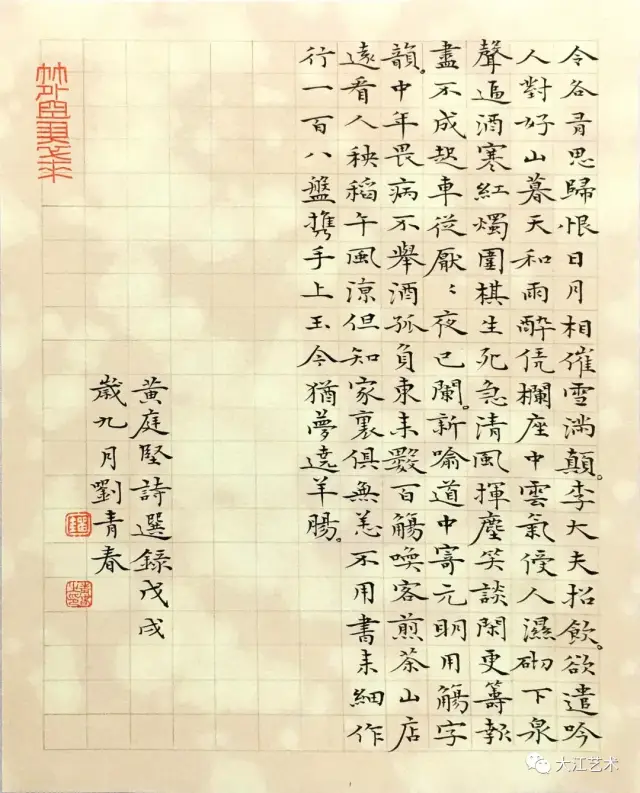 令各有思歸恨日月相催雪滿顛。李大夫招飲。欲遣吟
人對好山暮天和雨醉凭欄座中雲氣侵人濕砌下泉
聲逼酒寒紅燭圍棋生死急清風揮麈笑談閑更籌報
盡不成起車從厭〻夜已闌。新喻道中寄元明用觴字
韻。中年畏病不舉酒孤負東來數百觴喚客煎茶山店
遠看人秧稻午風涼但知家裏俱無恙不用書來細作
行一百八盤携手上至今猶夢遶羊腸。
黃庭堅詩選録戊戌
歲九月劉青春
大江艺术